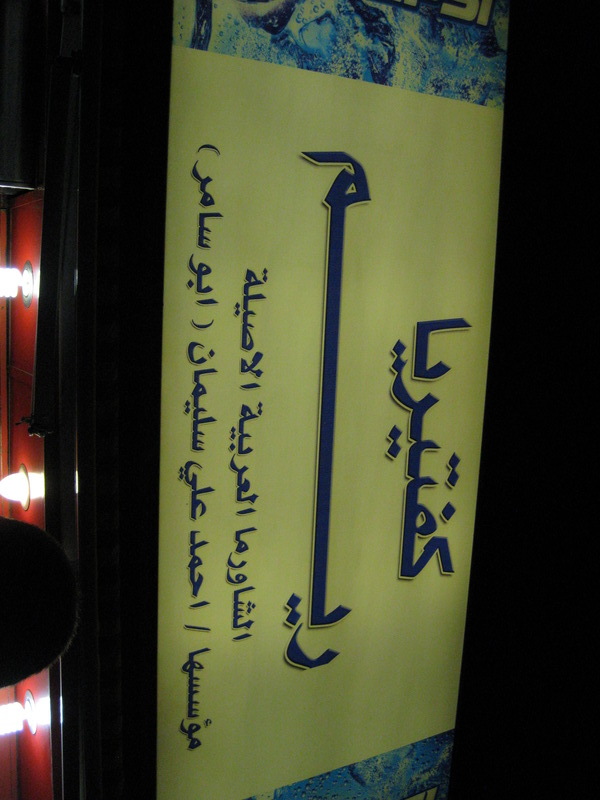 كفتيريا
ريم
الشاورما العربية الاصيلة
مؤسسها / احمد علي سليمان ( ابو سامر )